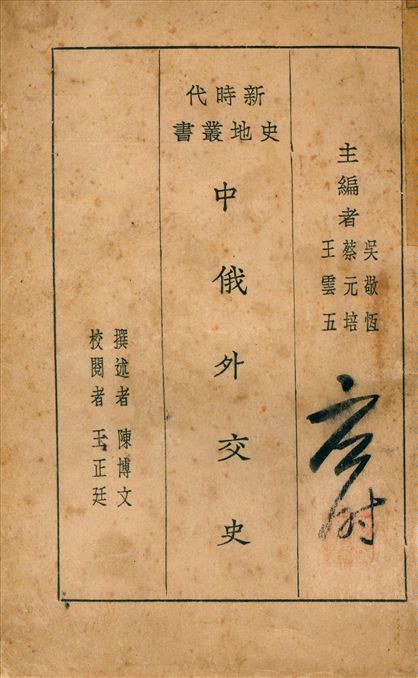 主編者
吳敬恆
蔡元培
王雲五
新時代
史地叢書
中俄外交史
撰述者 陳博文
校閱者 王正廷